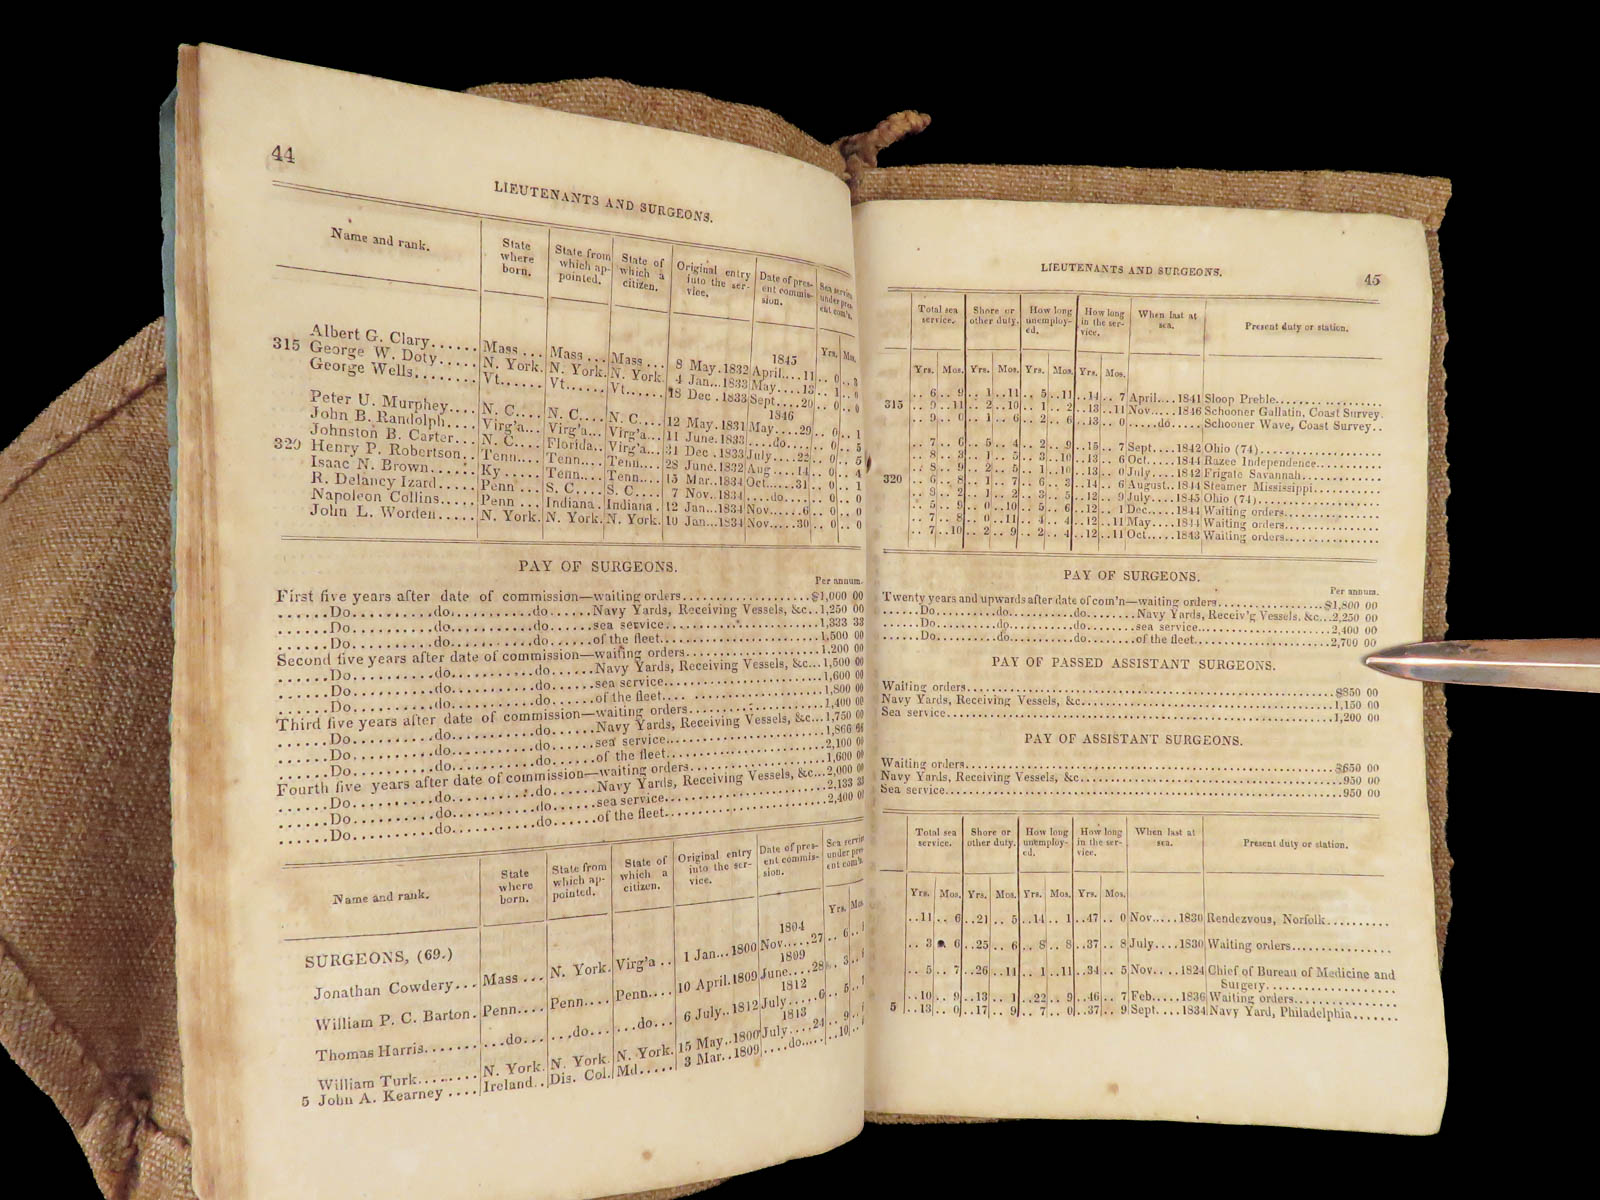 44
LIEUTENANTS AND SURGEONS.
Name and rank. State where born. State from which ap-pointed. State of which a citizen. Original entry into the ser-vice. Date of pres-ent commis-sion. Sea service under pres-ent com'n.
Yrs. Mos.
1845
Albert G. Clary...... Mass ... Mass ... Mass ... 8 May.1832 April....11 .. 0 .. 3
315 George W. Doty..... N. York. N. York. N. York. 4 Jan...1833 May....13 .. 1 ..
George Wells........ Vt...... Vt...... Vt...... 18 Dec .1833 Sept....20 .. 0 ..
1846
Peter U. Murphey.... N. C.... N. C.... N. C.... 12 May.1831 May....29 .. 0 .. 1
John B. Randolph.... Virg'a... Virg'a... Virg'a... 11 June.1833 ....do.... .. 0 .. 5
Johnston B. Carter... N. C.... Florida.. Virg'a... 31 Dec .1833 July....22 .. 0 .. 5
320 Henry P. Robertson.. Tenn.... Tenn.... Tenn.... 28 June.1832 Aug....14 .. 0 .. 4
Isaac N. Brown...... Ky .... Tenn.... Tenn.... 15 Mar..1834 Oct....31 .. 0 .. 1
R. Delancy Izard..... Penn ... S. C.... S. C.... 7 Nov..1834 ....do.... .. 0 .. 0
Napoleon Collins..... Penn ... Indiana. Indiana. 12 Jan...1834 Nov.....6 .. 0 .. 0
John L. Worden..... N. York. N. York. N. York. 10 Jan...1834 Nov....30 .. 0 .. 0
PAY OF SURGEONS.
Per annum.
First five years after date of commission—waiting orders..................$1,000 00
......Do..........do..........do......Navy Yards, Receiving Vessels, &c..1,250 00
......Do..........do..........do......sea service....................1,333 33
......Do..........do..........do......of the fleet....................1,500 00
Second five years after date of commission—waiting orders..................1,200 00
......Do..........do..........do......Navy Yards, Receiving Vessels, &c...1,500 00
......Do..........do..........do......sea service....................1,600 00
......Do..........do..........do......of the fleet....................1,800 00
Third five years after date of commission—waiting orders..................1,400 00
......Do..........do..........do......Navy Yards, Receiving Vessels, &c...1,750 00
......Do..........do..........do......sea service....................1,866 66
......Do..........do..........do......of the fleet....................2,100 00
Fourth five years after date of commission—waiting orders..................1,600 00
......Do..........do..........do......Navy Yards, Receiving Vessels, &c...2,000 00
......Do..........do..........do......sea service....................2,133 33
......Do..........do..........do......of the fleet....................2,400 00
Name and rank. State where born. State from which ap-pointed. State of which a citizen. Original entry into the ser-vice. Date of pres-ent commis-sion. Sea service under pres-ent com'n.
Yrs. Mos
SURGEONS, (69.)
1804
Jonathan Cowdery... Mass ... N. York. Virg'a .. 1 Jan...1800 Nov.....27 .. 6
1809
William P. C. Barton. Penn.... Penn.... Penn.... 10 April.1809 June....28 .. 3
1812
Thomas Harris....... ...do... ...do... ...do... 6 July..1812 July.....6 .. 5
1813
William Turk........ N. York. N. York. N. York. 15 May..1800 July....24 .. 9
5 John A. Kearney .... Ireland.. Dis. Col. Md..... 3 Mar..1809 ....do..... ..10
LIEUTENANTS AND SURGEONS. 45
Total sea service. Shore or other duty. How long unemploy-ed. How long in the ser-vice. When last at sea. Present duty or station.
Yrs. Mos. Yrs. Mos. Yrs. Mos. Yrs. Mos.
.. 6 .. 9 .. 1 ..11 .. 5 ..11 ..14 .. 7 April....1841 Sloop Preble...............
315 .. 9 ..11 .. 2 ..10 .. 1 .. 2 ..13 ..11 Nov....1846 Schooner Gallatin, Coast Survey.
.. 9 .. 0 .. 1 .. 6 .. 2 .. 6 ..13 .. 0 .....do..... Schooner Wave, Coast Survey..
.. 7 .. 6 .. 5 .. 4 .. 2 .. 9 ..15 .. 7 Sept....1842 Ohio (74)..............
.. 8 .. 3 .. 1 .. 5 .. 3 ..10 ..13 .. 6 Oct.....1844 Razee Independence..........
.. 8 .. 9 .. 2 .. 5 .. 1 ..10 ..13 .. 0 July....1842 Frigate Savannah............
320 .. 6 .. 8 .. 1 .. 7 .. 6 .. 3 ..14 .. 6 August..1844 Steamer Mississippi..........
.. 8 .. 2 .. 1 .. 2 .. 3 .. 5 ..12 .. 9 July....1845 Ohio (74)...............
.. 5 .. 9 .. 0 ..10 .. 5 .. 6 ..12 .. 1 Dec....1844 Waiting orders.............
.. 7 .. 8 .. 0 ..11 .. 4 .. 4 ..12 ..11 May....1844 Waiting orders.............
.. 7 ..10 .. 2 .. 9 .. 2 .. 4 ..12 ..11 Oct.....1843 Waiting orders.............
PAY OF SURGEONS.
Per annum.
Twenty years and upwards after date of com'n—waiting orders..................$1,800 00
......Do..........do..........do......Navy Yards, Receiv'g Vessels, &c...2,250 00
......Do..........do..........do......sea service....................2,400 00
......Do..........do..........do......of the fleet....................2,700 00
PAY OF PASSED ASSISTANT SURGEONS.
Waiting orders....................$850 00
Navy Yards, Receiving Vessels, &c....................1,150 00
Sea service....................1,200 00
PAY OF ASSISTANT SURGEONS.
Waiting orders....................$650 00
Navy Yards, Receiving Vessels, &c....................950 00
Sea service....................950 00
Total sea service. Shore or other duty. How long unemploy-ed. How long in the ser-vice. When last at sea. Present duty or station.
Yrs. Mos. Yrs. Mos. Yrs. Mos. Yrs. Mos.
..11 .. 6 ..21 .. 5 ..14 .. 1 ..47 .. 0 Nov.....1830 Rendezvous, Norfolk.........
.. 3 .. 6 ..25 .. 6 .. 8 .. 8 ..37 .. 8 July....1830 Waiting orders.............
.. 5 .. 7 ..26 ..11 .. 1 ..11 ..34 .. 5 Nov....1824 Chief of Bureau of Medicine and
Surgery..................
..10 .. 9 ..13 .. 1 ..22 .. 9 ..46 .. 7 Feb.....1836 Waiting orders.............
5 ..13 .. 0 ..17 .. 9 .. 7 .. 0 ..37 .. 9 Sept....1834 Navy Yard, Philadelphia.......